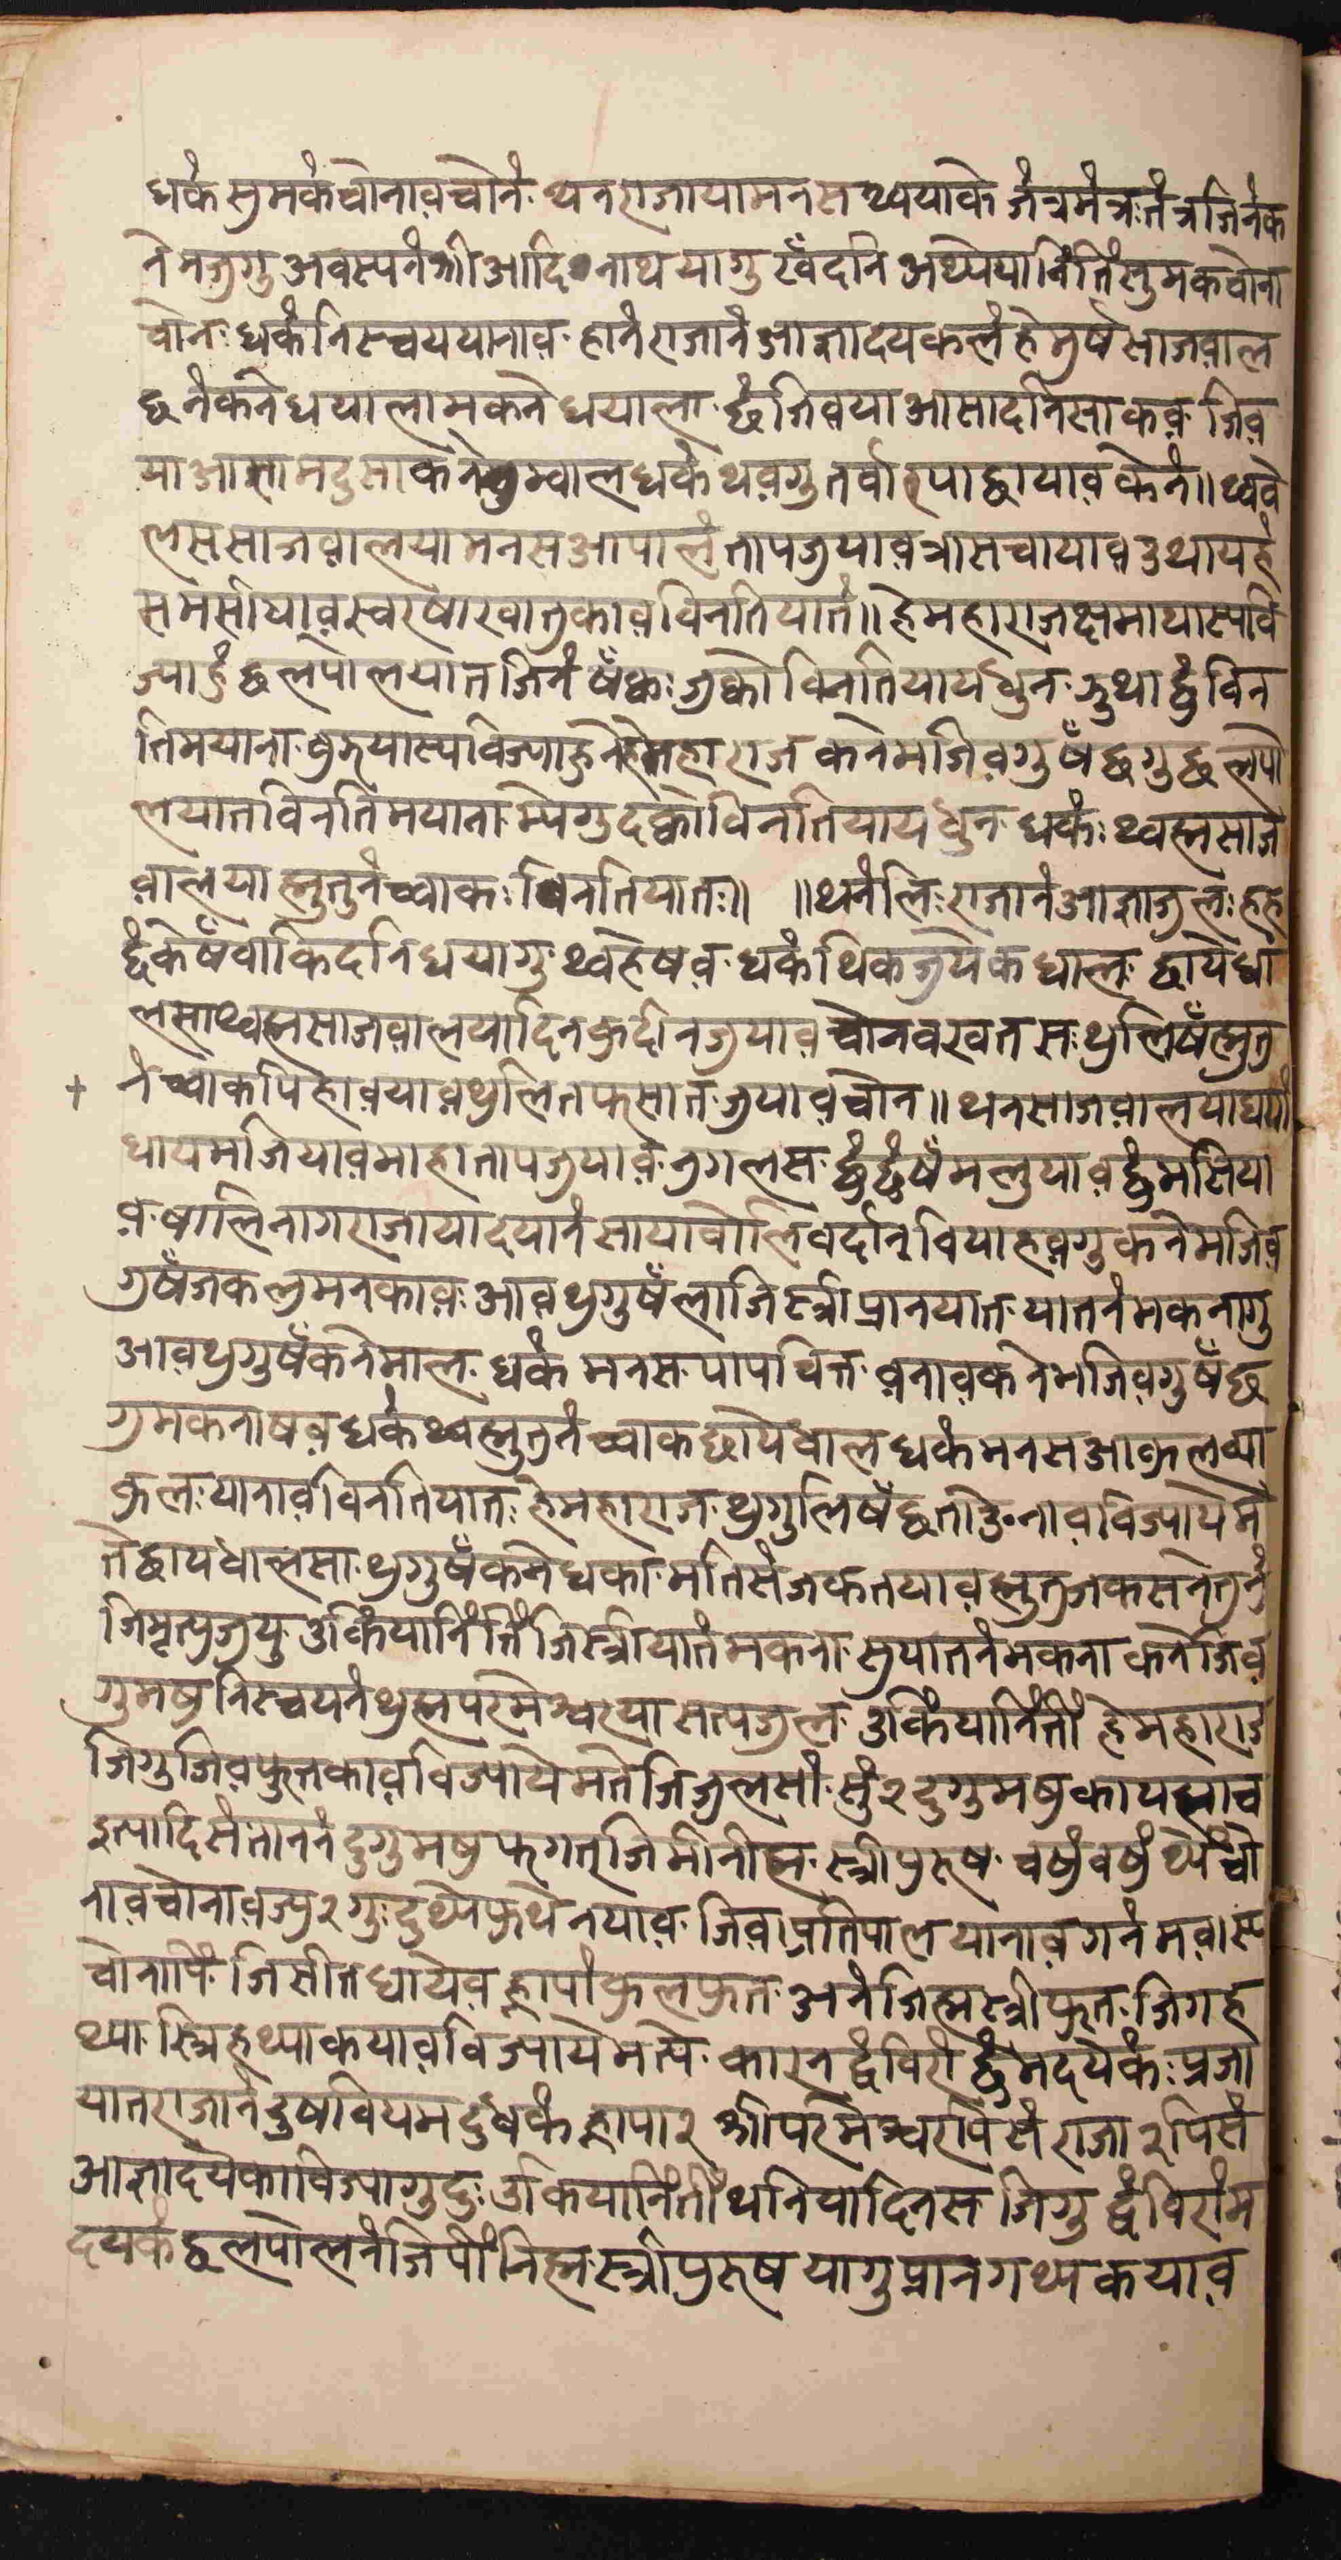 धकं सुमकं चोनाव चोनं थन राजाया मनस थ्वयाके जंत्रमंत्रःतंत्र जिनंक
ने मजुगु अवस्यनं श्री आदिनाथ यागु खँ दनि अथ्येया निंतिं सुमक चोना
चोन धकं निस्चय यानाव हानं राजानं आज्ञा दयकलं हे मुर्ष साजवाल
छनं कने धयाला मकने धयाला छं जिवया आसा दनिसा कव जिव
या आसा मदुसा कने म्वाल धकं थवगु तर्वारपा छायाव केनं॥ थ्ववे
लस साजवालया मनस आपालं ताप जुयाव त्रास चायाव उथाय हं
स मसीयाव स्वर षारषातुकाव विनति यातं॥ हे महाराज क्षमा यास्य वि
ज्याहुं छलपोलयात जिनं षँ छः जुको विनति याय धुन मुथा छुं विन
ति मयाना थुन यास्य विज्याहुने हे महाराज कने मजिवगु षँ छगु छलपो
लयात विनति मयाना म्येगु दक्वो विनति याय धुन धकंः थ्वह्म साज
वालया ह्मुतुनं च्वाकः विनति यातः॥ ॥थनंलिः राजानं आज्ञा जुलः हहे
छंके षँ वाकि दनि धयागु थ्वहे षव धकं थिक जुयेक धाल छाये धा
लसा थ्वह्म साजवालया दिन कुदीन जुयाव चोन वखतसः थुलि षँ ह्मुतु
नं च्वाक पिहा वयाव थुलि तफसात जुयाव चोन॥ थन साजवालया धया
धाय मजियाव माहा ताप जुयाव नुगलस छुं छुं षँ मलुयाव छुं मसिया
व षालि नागराजाया दयानं साया वोलि वर्दान् विया हवगु कने मजिव
गु षँ जक लुमनकावः आव थुगु षँ ला जि स्त्री प्रानयात यातनं मकनागु
आव थुगु षँ कने माल धकं मनस पाप चित वनाव कने मजिवगु षँ छ
गु मकना षव धकं थ्व ह्मुतुनं च्वाक छाये धाल धकं मनस आकुल व्या
कुलः यानाव विनति यातः हे महाराज थुगुलि षँ छता ङेनाव विज्याये म
ते छाय धालसा थुगु षँ कने धका मतिसं जक तयाव ह्मुतु जक सनेतुनुं
जि मृत्यु जुयु उकिं यानिंतिं जि स्त्री यातं मकना सुयातनं मकना कने जिव
गु मषु निस्चयनं थुह्म परमेश्वरया सत्य जुल उकिं यानिंतीं हे महाराज
जिगु जिव फुतकाव विज्याये मते जि जुलसां सुं २ दुगु मषु काय ह्माच
इत्यादि संतानं नं दुगु मषु फगत् जिमी नीह्म स्त्री पुरूष वर्षं वर्षं थ्यं चों
नाव चोनाव ज्यु २ गुः दुथ्ये फुथे नयाव जिव प्रतिपाल यानाव गनं मवास्य
चोनापिं जि सीत धायेव ह्लापां कुल फुत अनं जिह्म स्त्री फुत जिग ह
थ्या स्त्रि हथ्याकयाव विज्याये मत्ये कारन छुं विरां छुं मदयकंः प्रजा
यात राजानं दुष विय मदु धकं ह्लापा २ श्री परमेश्वर पिसं राजा २ पिसं
आज्ञा दयेका विज्यागु दुः उकिं यानिंतीं थनिया दिनस जिगु छुं विरां म
दयकं छलपोलनं जिपीं निह्म स्त्री पुरूष यागु प्रान गथ्य कयाव